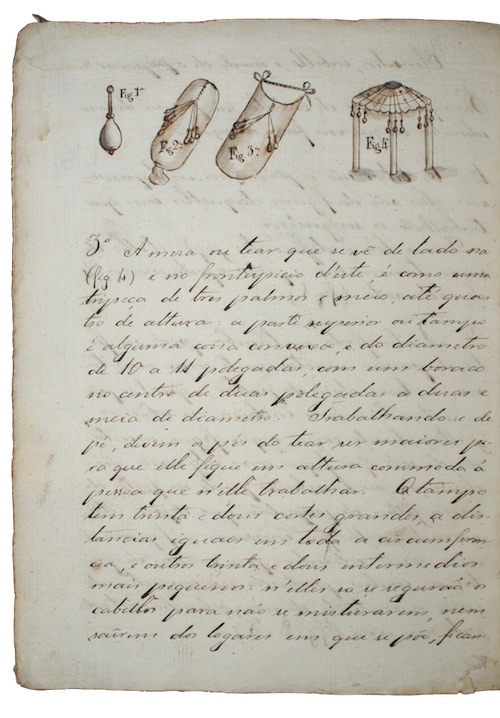 Fig 1ª
Fig 2ª
Fig. 3ª
Fig 4ª
3º A mesa, ou tear que se vê de lado na
(fig 4) e no frontespicio d'este é como uma
tripeça de tres palmos e meio até qua-
tro de altura: a parte superior ou tampo
é alguma coisa convexa, e do diametro
de 10 a 11 polegadas, com um boraco
no centro de duas polegadas a duas e
meia de diametro. Trabalhando-se de
pé, devem os pés do tear ser maiores pa-
ra que elle fique em altura commoda á
pessoa que n'elle trabalhar. O tampo
tem trinta e dous cortes grandes, a dis-
tancias iguaes em toda a circumferen-
cia, e outros trinta e dous intermedios
mais pequenos: n'elles se segurão os
cabellos para não se misturarem, nem
sairem dos logares em que se põe, fican-